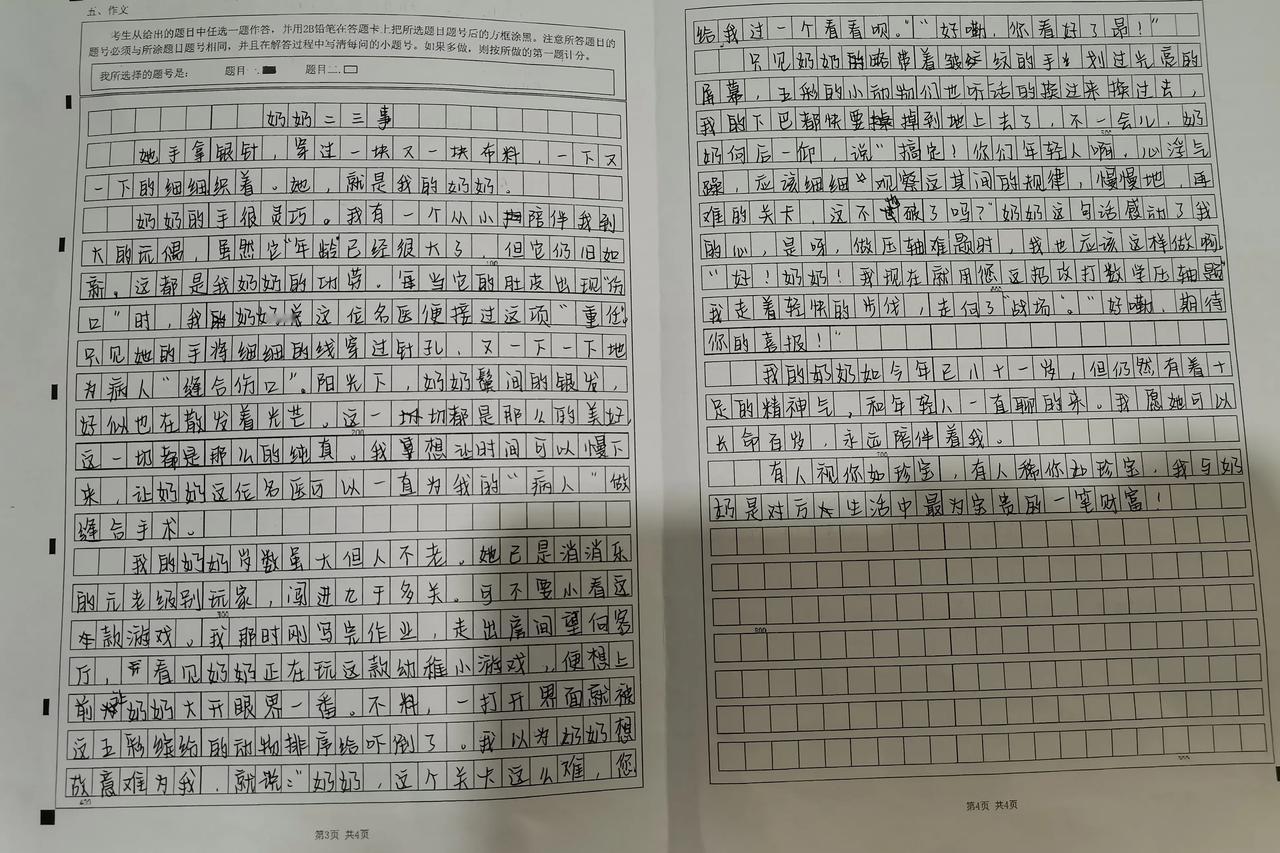 五、作文
考生从给出的题目中任选一题作答，并用2B铅笔在答题卡上把所选题目题号后的方框涂黑。注意所答题目的
题号必须与所涂题目题号相同，并且在解答过程中写清每问的小题号。如果多做，则按所做的第一题计分。
我所选择的题号是： 题目一 题目二
奶奶二三事
她手拿银针，穿过一块又一块布料，一下又
一下的细细织着。她，就是我的奶奶。
奶奶的手很灵巧。我有一个从小陪伴我到
大的玩偶，虽然它"年龄"已经很大了，但它仍旧如
100
新。这都是我奶奶的功劳。每当它的肚皮出现"伤
口"时，我奶奶这位名医便接过这项"重任"。
只见她的手将细细的线穿过针孔，又一下一下地
为病人"缝合伤口"。阳光下，奶奶鬓间的银发，
好似也在散发着光芒。这一切都是那么的美好，
200
这一切都是那么的纯真。我想让时间可以慢下
来，让奶奶这位名医可以一直为我的"病人"做
缝合手术。
我的奶奶岁数虽大但人不老。她已是消消乐
的元老级别玩家，闯进九千多关。可不要小看这
300
款游戏。我那时刚写完作业，走出房间望向客
厅，看见奶奶正在玩这款幼稚小游戏，便想上
前让奶奶大开眼界一番。不料，一打开界面就被
这五彩缤纷的动物排序给吓倒了。我以为奶奶想
故意难为我，就说："奶奶，这个关卡这么难，您
400
第3页 共4页
给我过一个看看呗。""好嘞，你看好了昂！"
只见奶奶的略带着皱纹的手划过光亮的
屏幕，五彩的小动物们也听话的换过来换过去，
我的下巴都快要掉到地上去了，不一会儿，奶
500
奶向后一仰，说"搞定！你们年轻人啊，心浮气
躁，应该细细观察这其间的规律，慢慢地，再
难的关卡，这不也破了吗？"奶奶这句话感动了我
的心，是呀，做压轴难题时，我也应该这样做啊。
"好！奶奶！我现在就用您这招攻打数学压轴题"
600
我走着轻快的步伐，走向了"战场"。"好嘞，期待
你的喜报！"
我的奶奶如今年已八十一岁，但仍然有着十
足的精神气，和年轻人一直聊的来。我愿她可以
长命百岁，永远陪伴着我。
700
有人视你如珍宝，有人称你比珍宝，我与奶
奶是对方生活中最为宝贵的一笔财富！
800
900
第4页 共4页